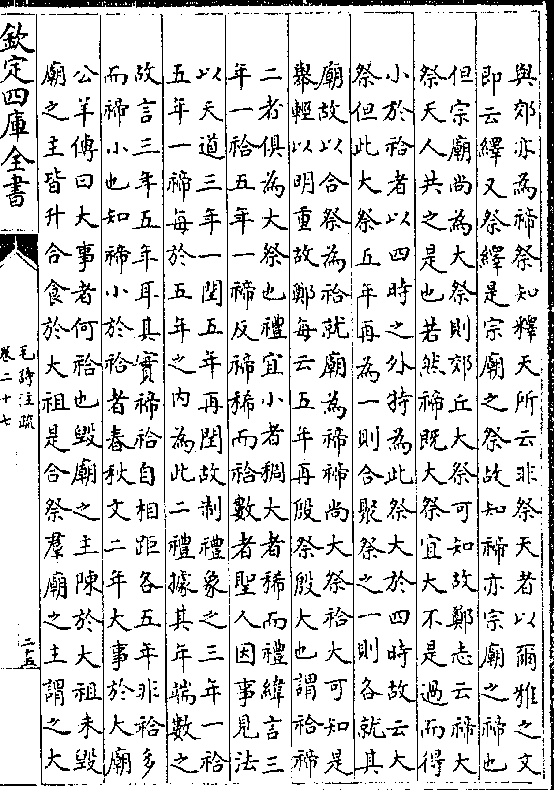 與郊亦為禘祭知釋天所云非祭天者以爾雅之文
即云繹又祭繹是宗廟之祭故知禘亦宗廟之禘也
但宗廟尚為大祭則郊丘大祭可知故鄭志云禘大
祭天人共之是也若然禘既大祭宜大不是過而得
小於祫者以四時之外特為此祭大於四時故云大
祭但此大祭五年再為一則合聚祭之一則各就其
廟故以合祭為祫就廟為禘禘尚大祭祫大可知是
舉輕以明重故鄭每云五年再殷祭殷大也謂祫禘
二者俱為大祭也禮宜小者稠大者稀而禮緯言三
年一祫五年一禘反禘稀而祫數者聖人因事見法
以天道三年一閏五年再閏故制禮象之三年一祫
五年一禘每於五年之內為此二禮據其年端數之
故言三年五年耳其實禘祫自相距各五年非祫多
而禘小也知禘小於祫者春秋文二年大事於大廟
公羊傳曰大事者何祫也毀廟之主陳於大祖未毀
廟之主皆升合食於大祖是合祭羣廟之主謂之大
欽定四庫全書
毛詩注疏
卷二十七
二十五